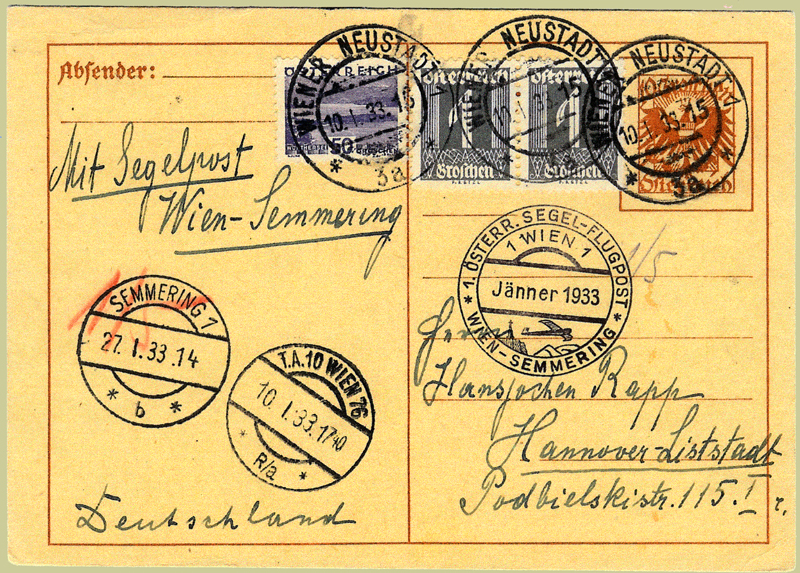 Absender:
ÖSTERREICH
50
GROSCHEN
Österreich
1
Groschen
Österreich
1
Groschen
Österreich
WIENER NEUSTADT 1
10. I. 33. 15
* 3a *
WIENER NEUSTADT 1
10. I. 33. 15
WIENER NEUSTADT 1
10. I. 33. 15
* 3a *
Mit Segelpost
Wien-Semmering
* 1. ÖSTERR. SEGEL-FLUGPOST *
1 WIEN 1
Jänner 1933
WIEN-SEMMERING
1/5
SEMMERING 1
27. I. 33. 14
* b *
T.A. 10 WIEN 76
10. I. 33. 17 40
* R/a *
Herrn
Hansjochen Rapp
Hannover-Liststadt
Podbielskistr. 115. I r.
Deutschland